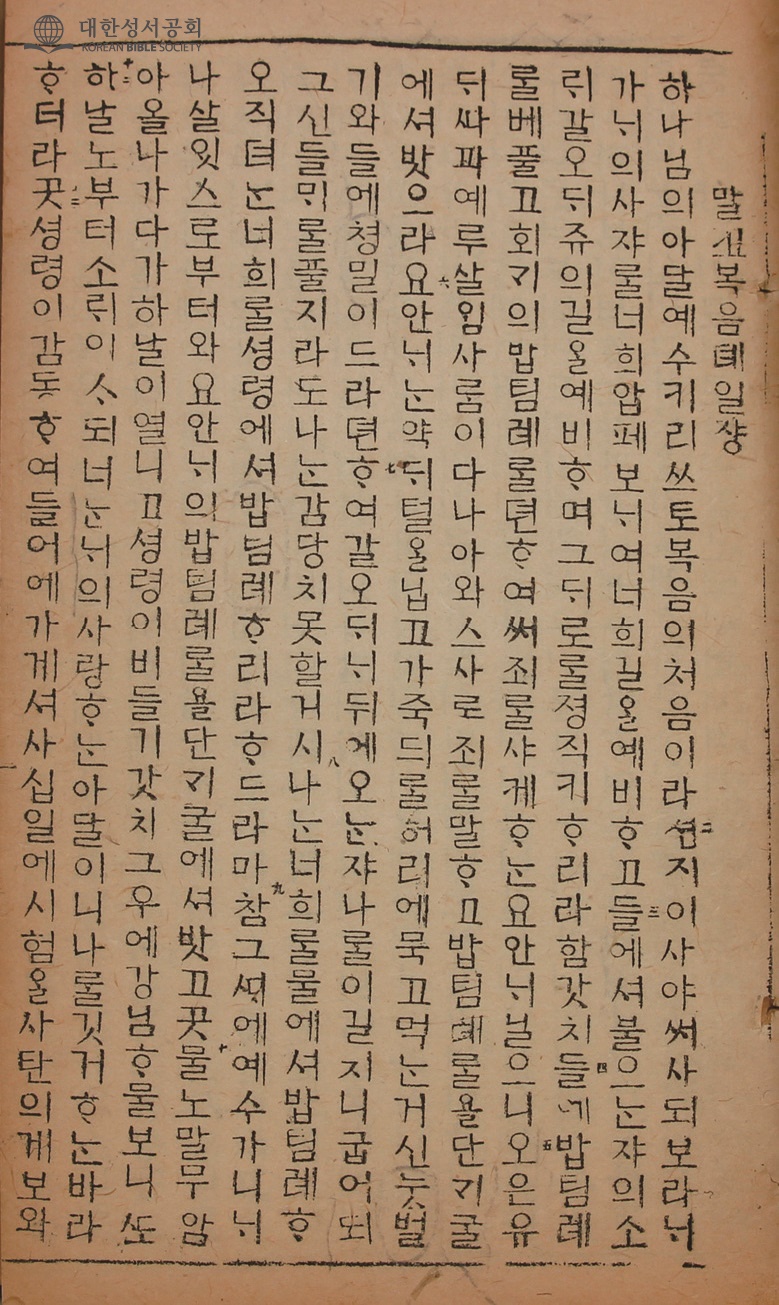 대한성서공회
KOREAN BIBLE SOCIETY
말코복음뎨일쟝
하나님의아달예수키리쓰토복음의처음이라二션지이사야써사되보라ᄂᆡ
가ᄂᆡ의사쟈룰너희압페보ᄂᆡ여너희길올예비ᄒᆞ고三들에셔불으ᄂᆞᆫ쟈의소
ᄅᆡ갈오ᄃᆡ쥬의길올예비ᄒᆞ며그ᄃᆡ로룰졍직키ᄒᆞ리라함갓치四들에밥팀례
룰베풀고회ᄀᆡ의밥팀례룰뎐ᄒᆞ여써죄룰샤케ᄒᆞᄂᆞᆫ요안ᄂᆡ닐으니五오은유
ᄃᆡ싸파예루살임사룸이다나아와스사로죄룰말ᄒᆞ고밥팀례룰욜단ᄀᆡ굴
에셔밧으라六요안ᄂᆡᄂᆞᆫ약ᄃᆡ털올닙고가죽듸룰허리에묵고먹ᄂᆞᆫ거신ᄂᆞᆺ벌
기와들에쳥밀이드라七뎐ᄒᆞ여갈오ᄃᆡᄂᆡ뒤에오ᄂᆞᆫ쟈나룰이길지니굽어되
그신들ᄆᆡ룰풀지라도나ᄂᆞᆫ감당치못할거시八나ᄂᆞᆫ너희룰물에셔밥팀례ᄒᆞ
오직뎌ᄂᆞᆫ너희룰셩령에셔밥팀례ᄒᆞ리라ᄒᆞ드라九마참그ᄯᆡ에예수가니ᄂᆡ
나살잇스로부터와요안ᄂᆡ의밥팀례룰욜단ᄀᆡ굴에셔밧고十곳물노말무암
아올나가다가하날이열니고셩령이비들기갓치그우에강님ᄒᆞ물보니ᄯᅩ
十一하날노부터소ᄅᆡ이ᄉᆞ되너ᄂᆞᆫᄂᆡ의사랑ᄒᆞᄂᆞᆫ아달이니나룰깃거ᄒᆞᄂᆞᆫ바라
ᄒᆞ터라十二곳셩령이감동ᄒᆞ여들어에가게셔사십일에시험올사탄의게보와